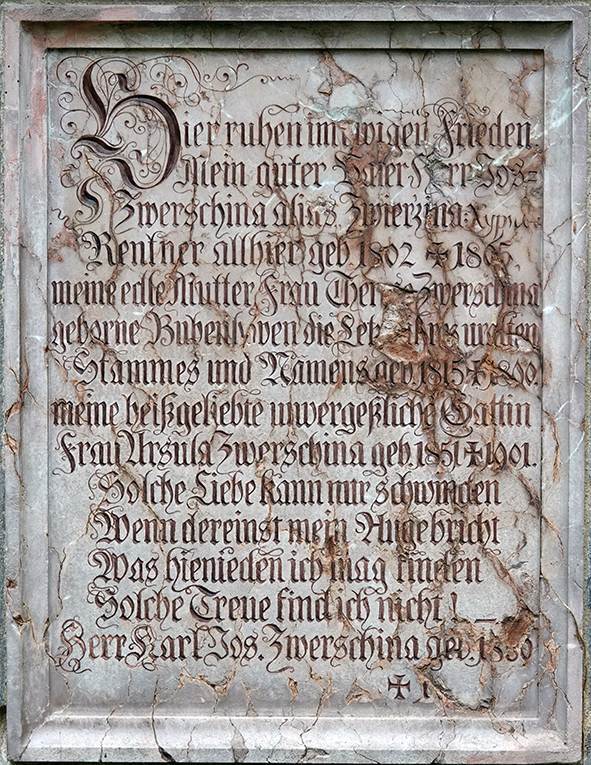 Hier ruhen im ewigen Frieden
Mein guter Vater Herr Jos=
Zwerschina alias Zwierzina
Rentner allhier geb 1802 ✠
meine edle Mutter Frau Zwerschina
geborne die des uralten
Stammes und Namens geb. 1815 ✠
meine heißgeliebte unvergeßliche Gattin
Frau Ursula Zwerschina geb. 1851 ✠ 1901.
Solche Liebe kann nur schwinden
Wenn dereinst mein Auge bricht
Was hienieden ich mag finden
Solche Treue find ich nicht!
Herr Karl Jos. Zwerschina geb.
✠